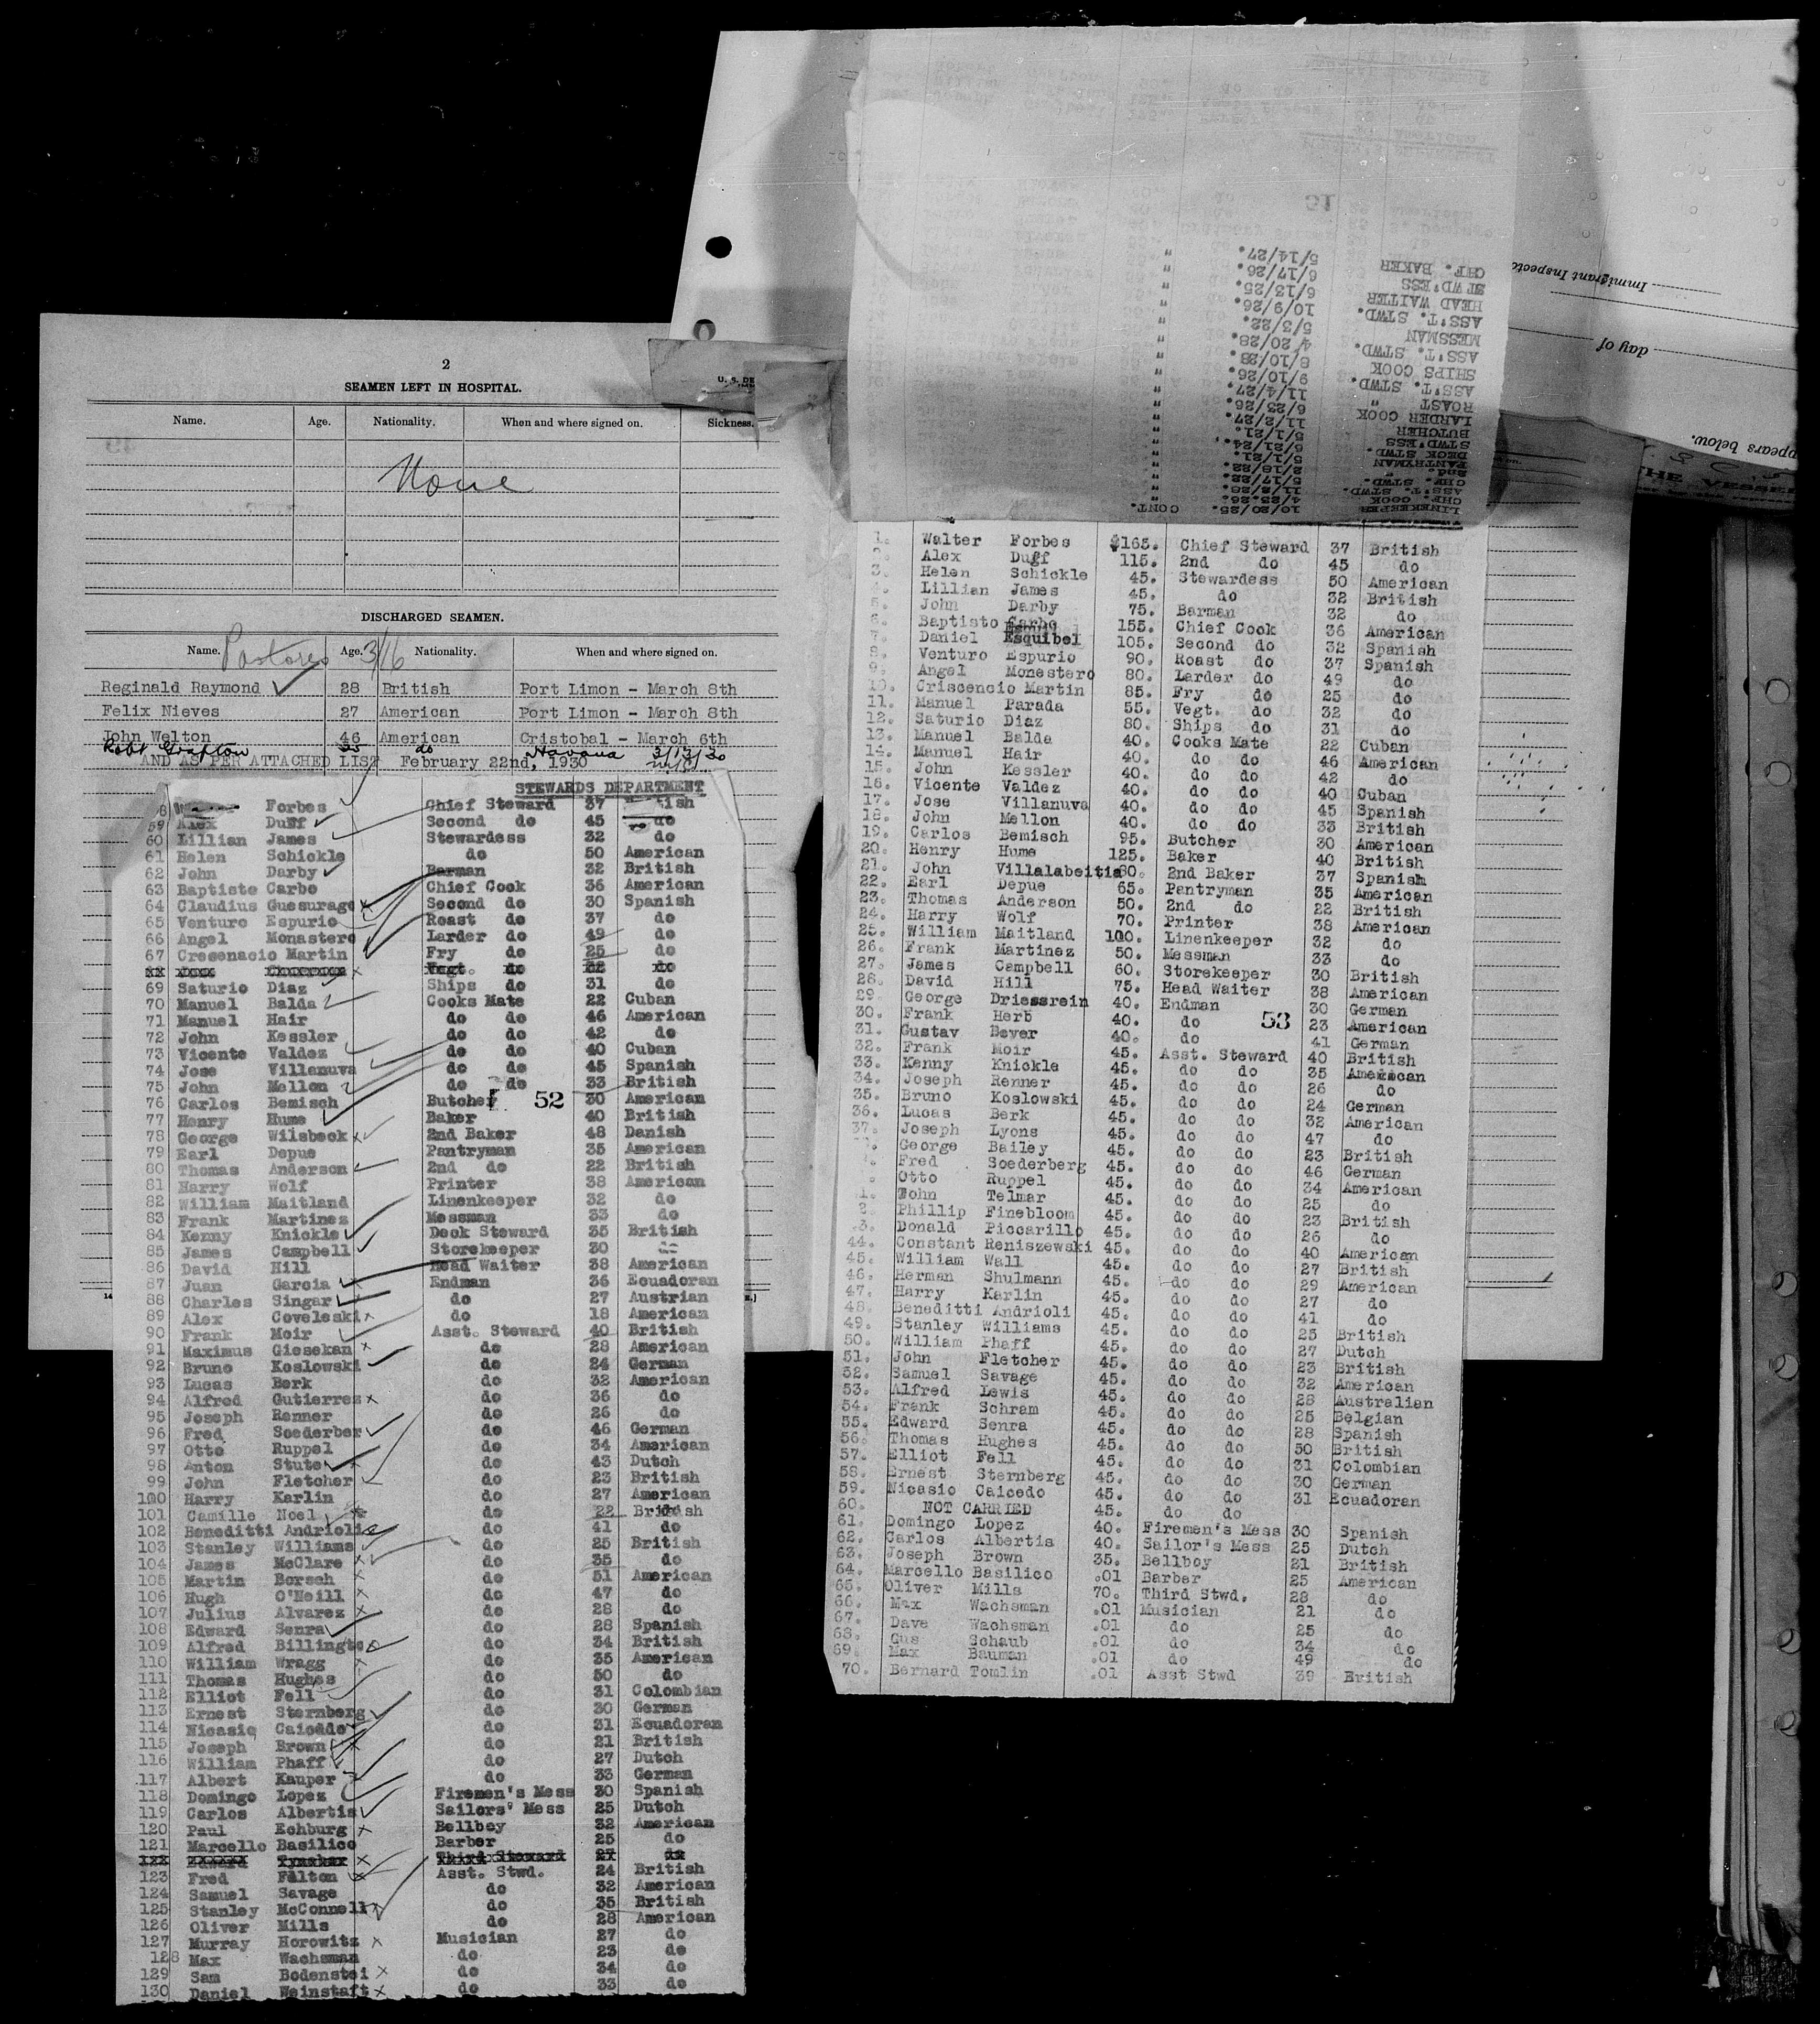 2
SEAMEN LEFT IN HOSPITAL.
Name. Age. Nationality. When and where signed on. Sickness.
None
DISCHARGED SEAMEN.
Name. Age. Nationality. When and where signed on.
Pastores 3/16
Reginald Raymond 28 British Port Limon - March 8th
Felix Nieves 27 American Port Limon - March 8th
John Welton 46 American Cristobal - March 6th
Robt Grafton do Havana
AND AS PER ATTACHED LIST February 22nd, 1930
STEWARDS DEPARTMENT
Forbes Chief Steward 37
59 Alex Duff Second do 45 do
60 Lillian James Stewardess 32 do
61 Helen Schickle do 50 American
62 John Darby Barman 32 British
63 Baptiste Carbo Chief Cook 36 American
64 Claudius Guesurage Second do 30 Spanish
65 Venturo Espurio Roast do 37 do
66 Angel Monastero Larder do 49 do
67 Cresenacio Martin Fry do 25 do
Vegt. do 32 do
69 Saturio Diaz Ships do 31 do
70 Manuel Balda Cooks Mate 22 Cuban
71 Manuel Hair do do 46 American
72 John Kessler do do 42 do
73 Vicente Valdez do do 40 Cuban
74 Jose Villanuva do do 45 Spanish
75 John Mellon do do 33 British
76 Carlos Bemisch Butcher 30 American
52
77 Henry Hume Baker 40 British
78 George Wilsbeck 2nd Baker 48 Danish
79 Earl Depue Pantryman 35 American
80 Thomas Anderson 2nd do 22 British
81 Harry Wolf Printer 38 American
82 William Maitland Linenkeeper 32 do
83 Frank Martinez Messman 33 do
84 Kenny Knickle Deck Steward 35 British
85 James Campbell Storekeeper 30 do
86 David Hill Head Waiter 38 American
87 Juan Garcia Endman 36 Ecuadoran
88 Charles Singar do 27 Austrian
89 Alex Coveleski do 18 American
90 Frank Moir Asst. Steward 40 British
91 Maximus Giesekan do 28 American
92 Bruno Koslowski do 24 German
93 Lucas Berk do 32 American
94 Alfred Gutierrez do 36 do
95 Joseph Renner do 26 do
96 Fred Soederber do 46 German
97 Otto Ruppel do 34 American
98 Anton Stute do 43 Dutch
99 John Fletcher do 23 British
100 Harry Karlin do 27 American
101 Camille Noel do 22 British
102 Beneditti Andrioli do 41 do
103 Stanley Williams do 25 British
104 James McClare do 35 do
105 Martin Borsch do 51 American
106 Hugh O'Neill do 47 do
107 Julius Alvarez do 28 do
108 Edward Senra do 28 Spanish
109 Alfred Billingto do 34 British
110 William Wragg do 35 American
111 Thomas Hughes do 50 do
112 Elliot Fell do 31 Colombian
113 Ernest Sternberg do 30 German
114 Nicasio Caicedo do 31 Ecuadoran
115 Joseph Brown do 21 British
116 William Phaff do 27 Dutch
117 Albert Kauper do 33 German
118 Domingo Lopez Firemen's Mess 30 Spanish
119 Carlos Albertis Sailors' Mess 25 Dutch
120 Paul Echburg Bellboy 32 American
121 Marcello Basilico Barber 25 do
Third Steward 27
123 Fred Falton Asst. Stwd. 24 British
124 Samuel Savage do 32 American
125 Stanley McConnell do 35 British
126 Oliver Mills do 28 American
127 Murray Horowitz Musician 27 do
128 Max Wachsman do 23 do
129 Sam Bodenstei do 34 do
130 Daniel Weinstaft do 33 do
U. S. DE
51
5/14/27. "
CHF. BAKER 6/17/26. "
STWD'ESS 6/13/25. "
HEAD WAITER 10/9/26. "
ASS'T. STWD. 5/3/22. "
MESSMAN 4/20/28. "
ASS'T. STWD. 8/10/28. "
SHIPS COOK 9/10/26. "
ASS'T. STWD. 11/4/27. "
ROAST " 6/25/26. "
LARDER COOK 11/2/27. "
BUTCHER 5/1/21. "
STWD'ESS 6/21/24. "
DECK STWD. 5/1/21. "
PANTRYMAN 2/18/22. "
CHF. STWD. 5/17/22. "
ASS'T. STWD.
CHF. COOK 4/25/26. "
LINEKEEPER 10/20/25. CONT.
Immigrant Inspector
day of
appears below.
THE VESSEL
1. Walter Forbes $165. Chief Steward 37 British
2. Alex Duff 115. 2nd do 45 do
3. Helen Schickle 45. Stewardess 50 American
Lillian James 45. do 32 British
5. John Darby 75. Barman 32 do
6. Baptisto Carbo 155. Chief Cook 36 American
7. Daniel Esquibel 105. Second do 32 Spanish
8. Venturo Espurio 90. Roast do 37 Spanish
9. Angel Monestero 80. Larder do 49 do
10. Criscencio Martin 85. Fry do 25 do
11. Manuel Parada 55. Vegt. do 32 do
12. Saturio Diaz 80. Ships do 31 do
13. Manuel Balda 40. Cooks Mate 22 Cuban
14. Manuel Hair 40. do do 46 American
15. John Kessler 40. do do 42 do
16. Vicente Valdez 40. do do 40 Cuban
17. Jose Villanuva 40. do do 45 Spanish
18. John Mellon 40. do do 33 British
19. Carlos Bemisch 95. Butcher 30 American
20. Henry Hume 125. Baker 40 British
21. John Villalabeitia 80. 2nd Baker 37 Spanish
22. Earl Depue 65. Pantryman 35 American
23. Thomas Anderson 50. 2nd do 22 British
24. Harry Wolf 70. Printer 38 American
25. William Maitland 100. Linenkeeper 32 do
26. Frank Martinez 50. Messman 33 do
27. James Campbell 60. Storekeeper 30 British
28. David Hill 75. Head Waiter 38 American
29. George Driessrein 40. Endman 30 German
30. Frank Herb 40. do 23 American
53
31. Gustav Beyer 40. do 41 German
32. Frank Moir 45. Asst. Steward 40 British
33. Kenny Knickle 45. do do 35 American
34. Joseph Renner 45. do do 26 do
35. Bruno Koslowski 45. do do 24 German
36. Lucas Berk 45. do do 32 American
37. Joseph Lyons 45. do do 47 do
George Bailey 45. do do 23 British
Fred Soederberg 45. do do 46 German
Otto Ruppel 45. do do 34 American
1. John Telmar 45. do do 25 do
2. Phillip Finebloom 45. do do 23 British
3. Donald Piccarillo 45. do do 26 do
44. Constant Reniszewski 45. do do 40 American
45. William Wall 45. do do 27 British
46. Herman Shulmann 45. do do 29 American
47. Harry Karlin 45. do do 27 do
48. Beneditti Andrioli 45. do do 41 do
49. Stanley Williams 45. do do 25 British
50. William Phaff 45. do do 27 Dutch
51. John Fletcher 45. do do 23 British
52. Samuel Savage 45. do do 32 American
53. Alfred Lewis 45. do do 28 Australian
54. Frank Schram 45. do do 25 Belgian
55. Edward Senra 45. do do 28 Spanish
56. Thomas Hughes 45. do do 50 British
57. Elliot Fell 45. do do 31 Colombian
58. Ernest Sternberg 45. do do 30 German
59. Nicasio Caicedo 45. do do 31 Ecuadoran
60. NOT CARRIED 45. do do
61. Domingo Lopez 40. Firemen's Mess 30 Spanish
62. Carlos Albertis 40. Sailor's Mess 25 Dutch
63. Joseph Brown 35. Bellboy 21 British
64. Marcello Basilico .01 Barber 25 American
65. Oliver Mills 70. Third Stwd. 28 do
66. Max Wachsman .01 Musician 21 do
67. Dave Wachsman .01 do 25 do
68. Gus Schaub .01 do 34 do
69. Max Bauman .01 do 49 do
70. Bernard Tomlin .01 Asst Stwd 39 British